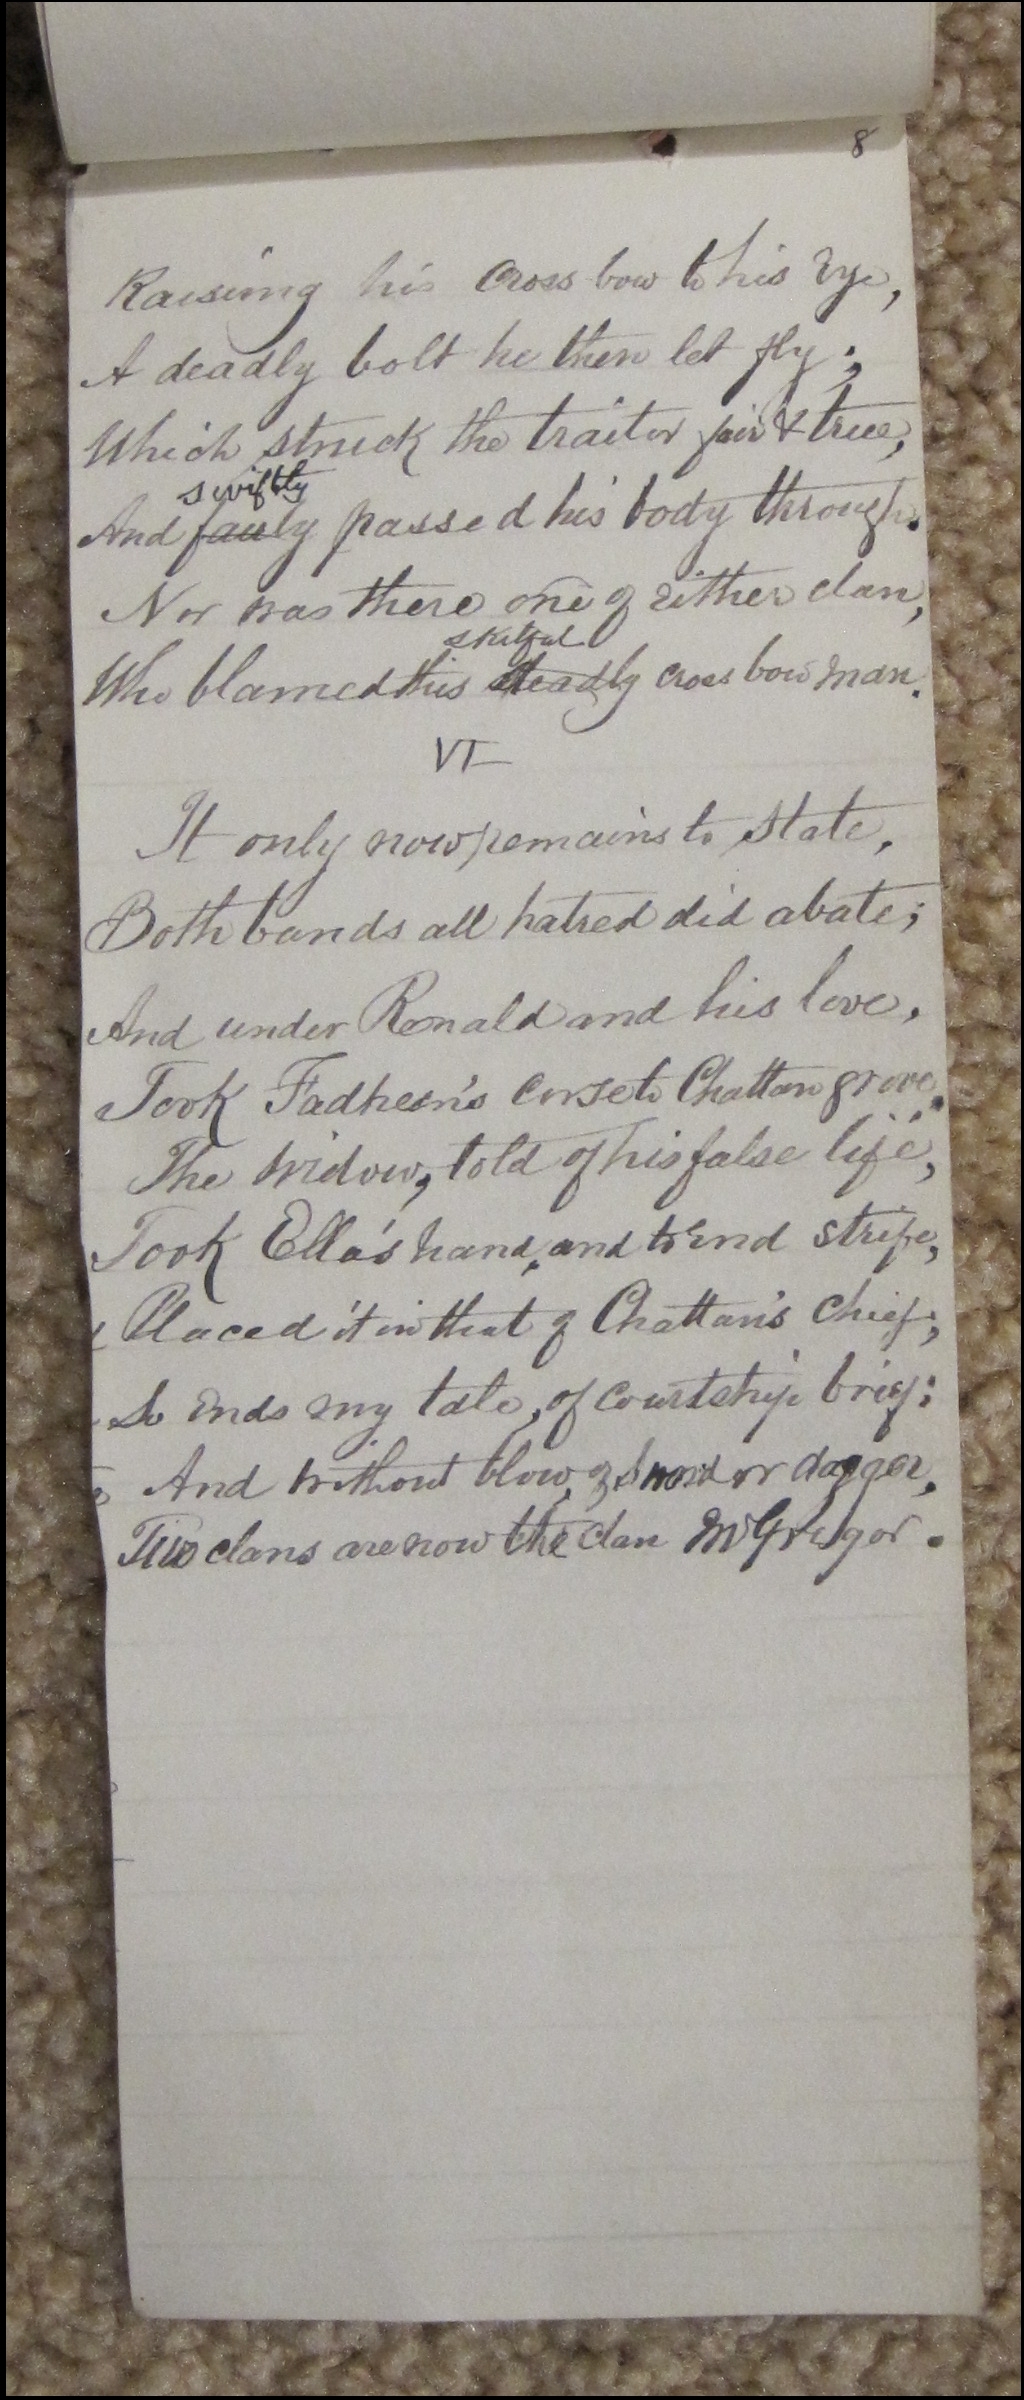 8
Raiseing his Cross bow to his Eye,
A deadly bolt he then let fly;
Which struck the traitor fair & true,
swiftly
And fairly passed his body through.
Nor was there one of Either clan,
skilful
Who blamed this deadly cross bow man.
VI
It only now remains to state,
Both bands all hatred did abate;
And under Ronald and his love,
Took Fadheon's corse to Chattan grove.
The Widow, told of his false life,
Took Ella's hand, and to End strife,
Placed it in that of Chattan's Chief;
So Ends my tale, of courtship brief:
And without blow, of Sword or dagger,
Two clans are now the clan McGregor.